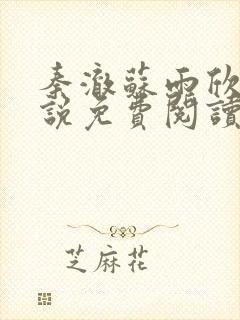 秦澈蘇雨欣
說免費閱讀
芝麻花